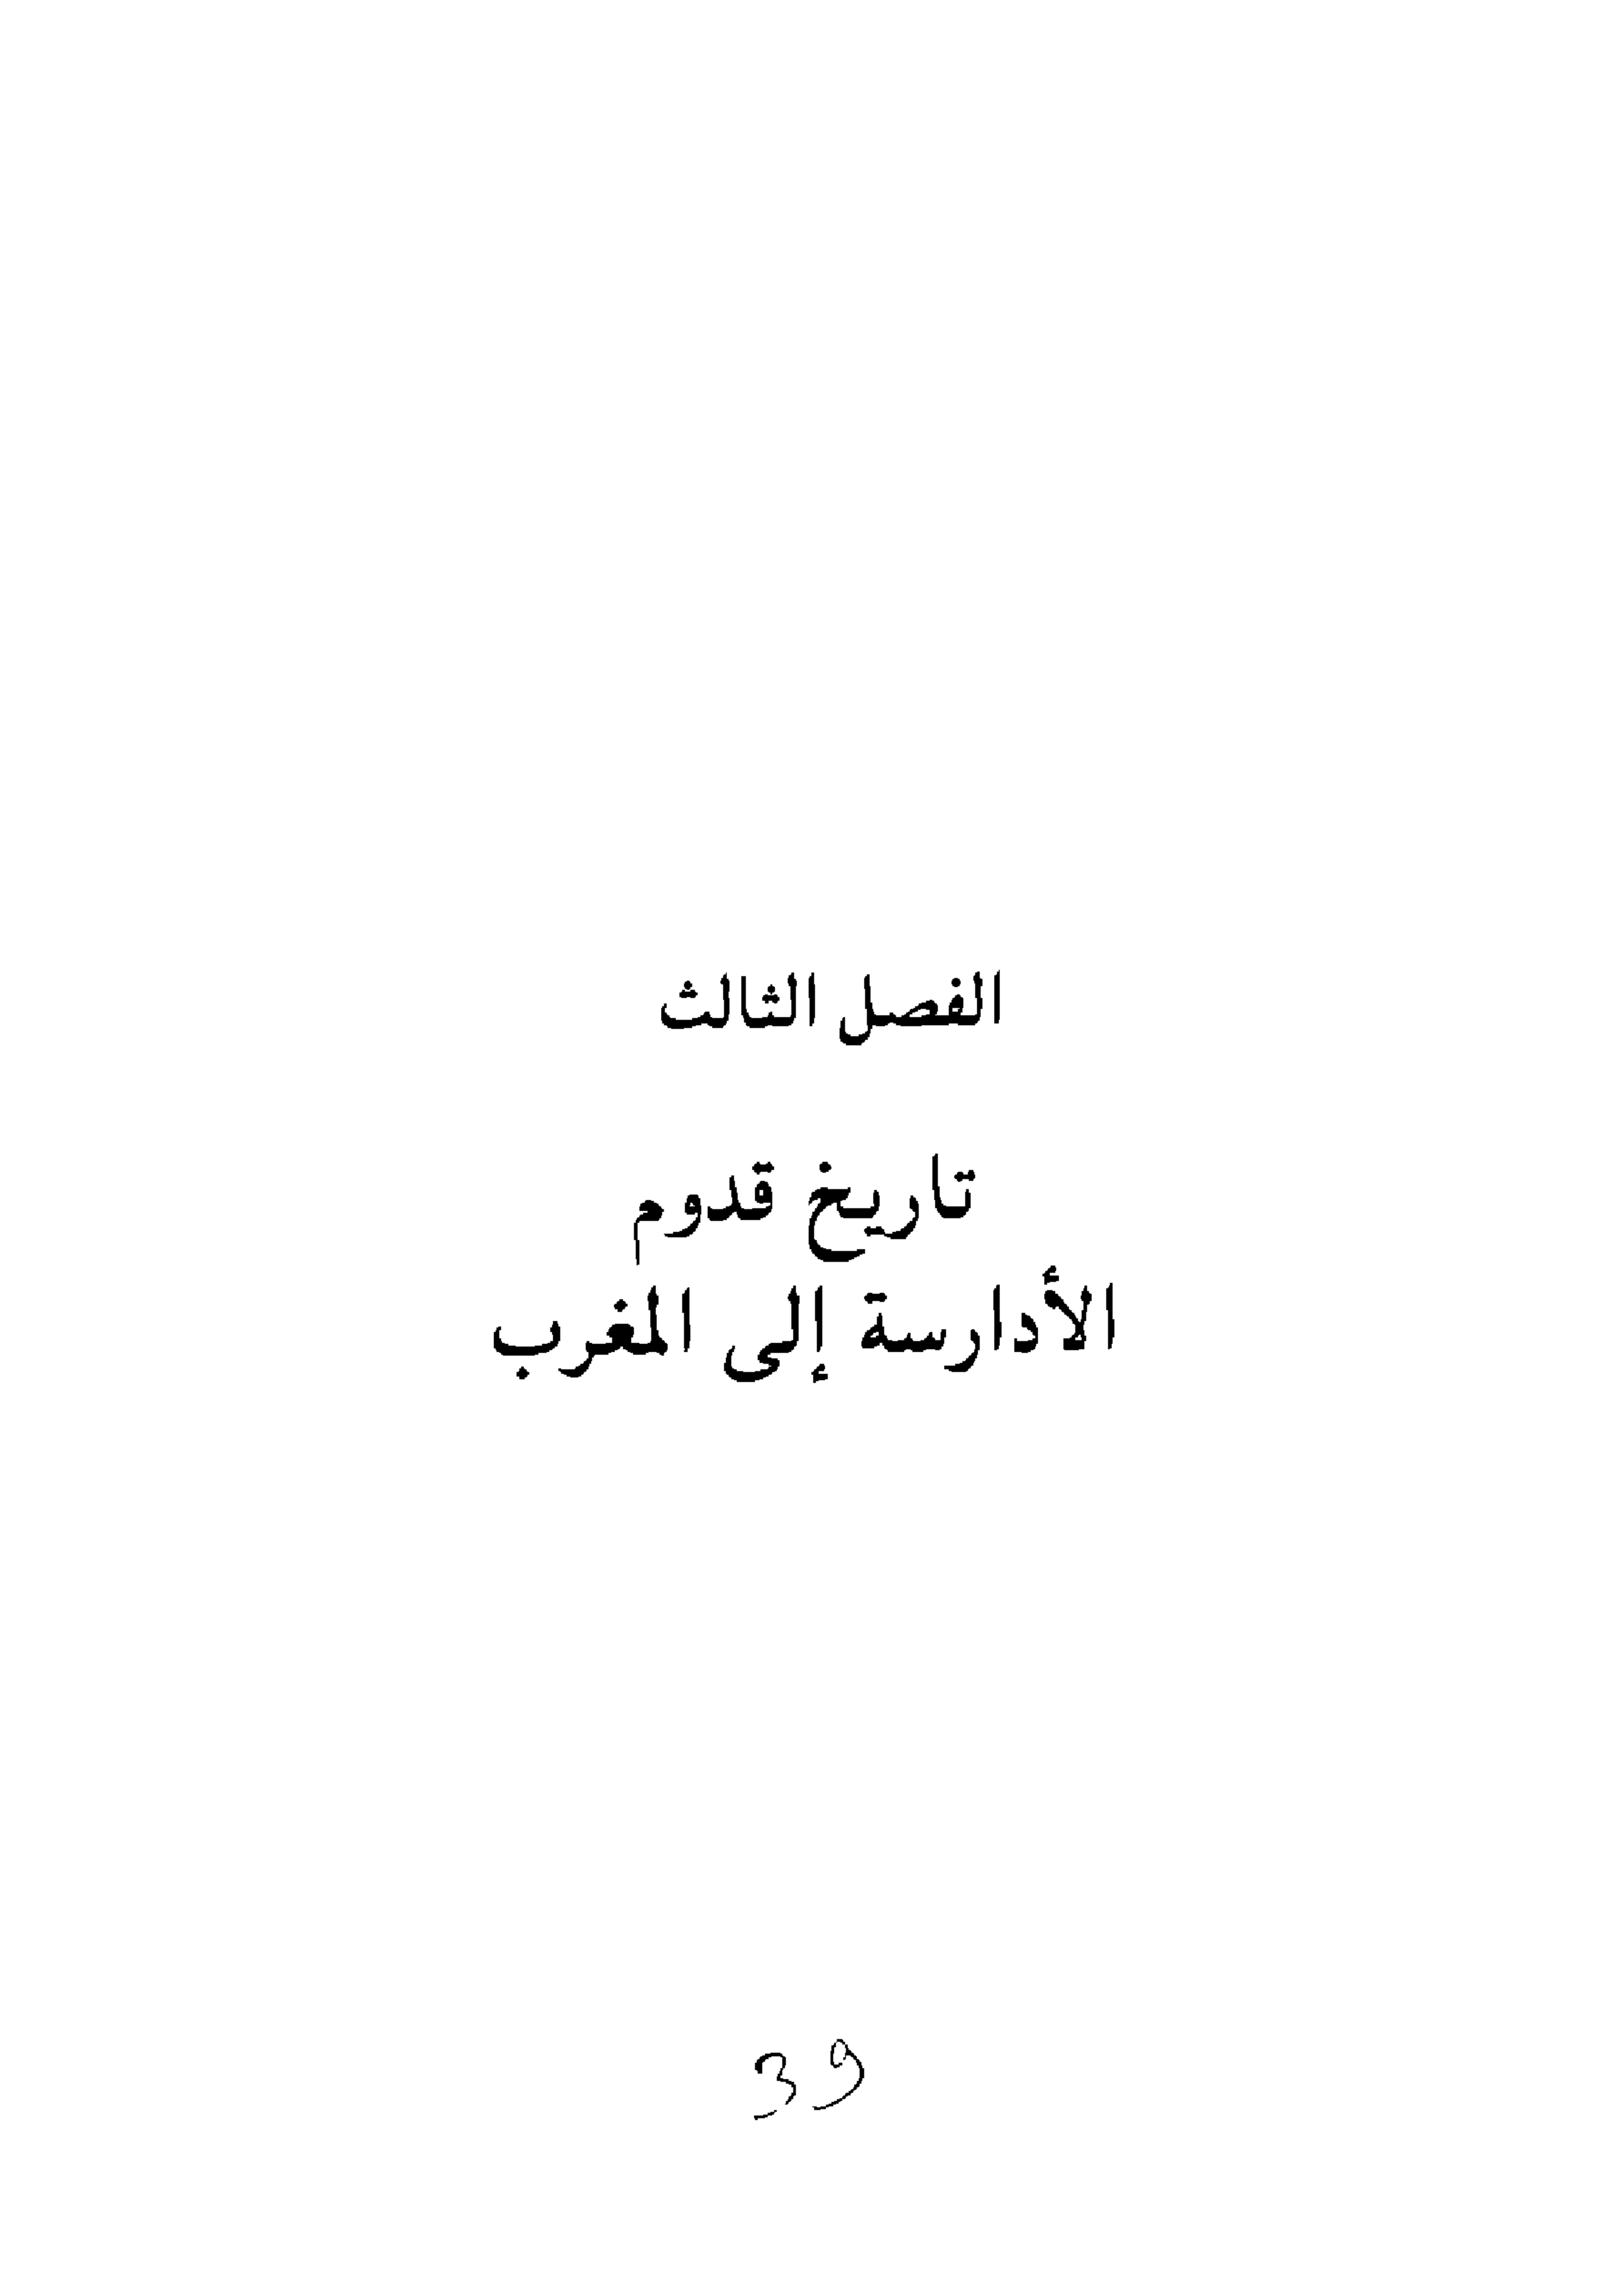 الفصل الثالث
تاريخ قدوم
الأدارسة إلى المغرب
39